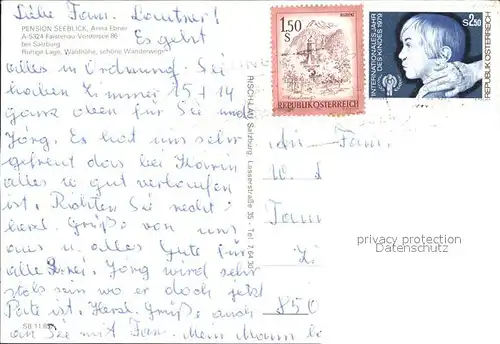 Liebe Fam.
PENSION SEEBLICK, Anna Ebner
A-5324 Faistenau-Vordersee 86
bei Salzburg
Ruhige Lage, Waldnähe, schöne Wanderwege
Es geht
alles in Ordnung. Sie
haben Zimmer 15 + 14
ganz oben für Sie und
Jörg. Es hat uns sehr
gefreut das bei Karin
alles so gut verlaufen
ist. Richten Sie recht
herzl. Grüße von uns
aus u. alles Gute für
alle 3. Jörg wird sehr
stolz sein wo er doch jetzt
Pate ist. Herzl. Grüße auch
an Sie mit Fam. Mein Mann
SB 11.8
RISCH-LAU Salzburg Lasserstraße 35 - Tel. 7 64 30
1.50
S
BLUDENZ
REPUBLIK ÖSTERREICH
INTERNATIONALES JAHR
DES KINDES 1979
S 2.50
REPUBLIK ÖSTERREICH
Fam.
850
privacy protection
Datenschutz